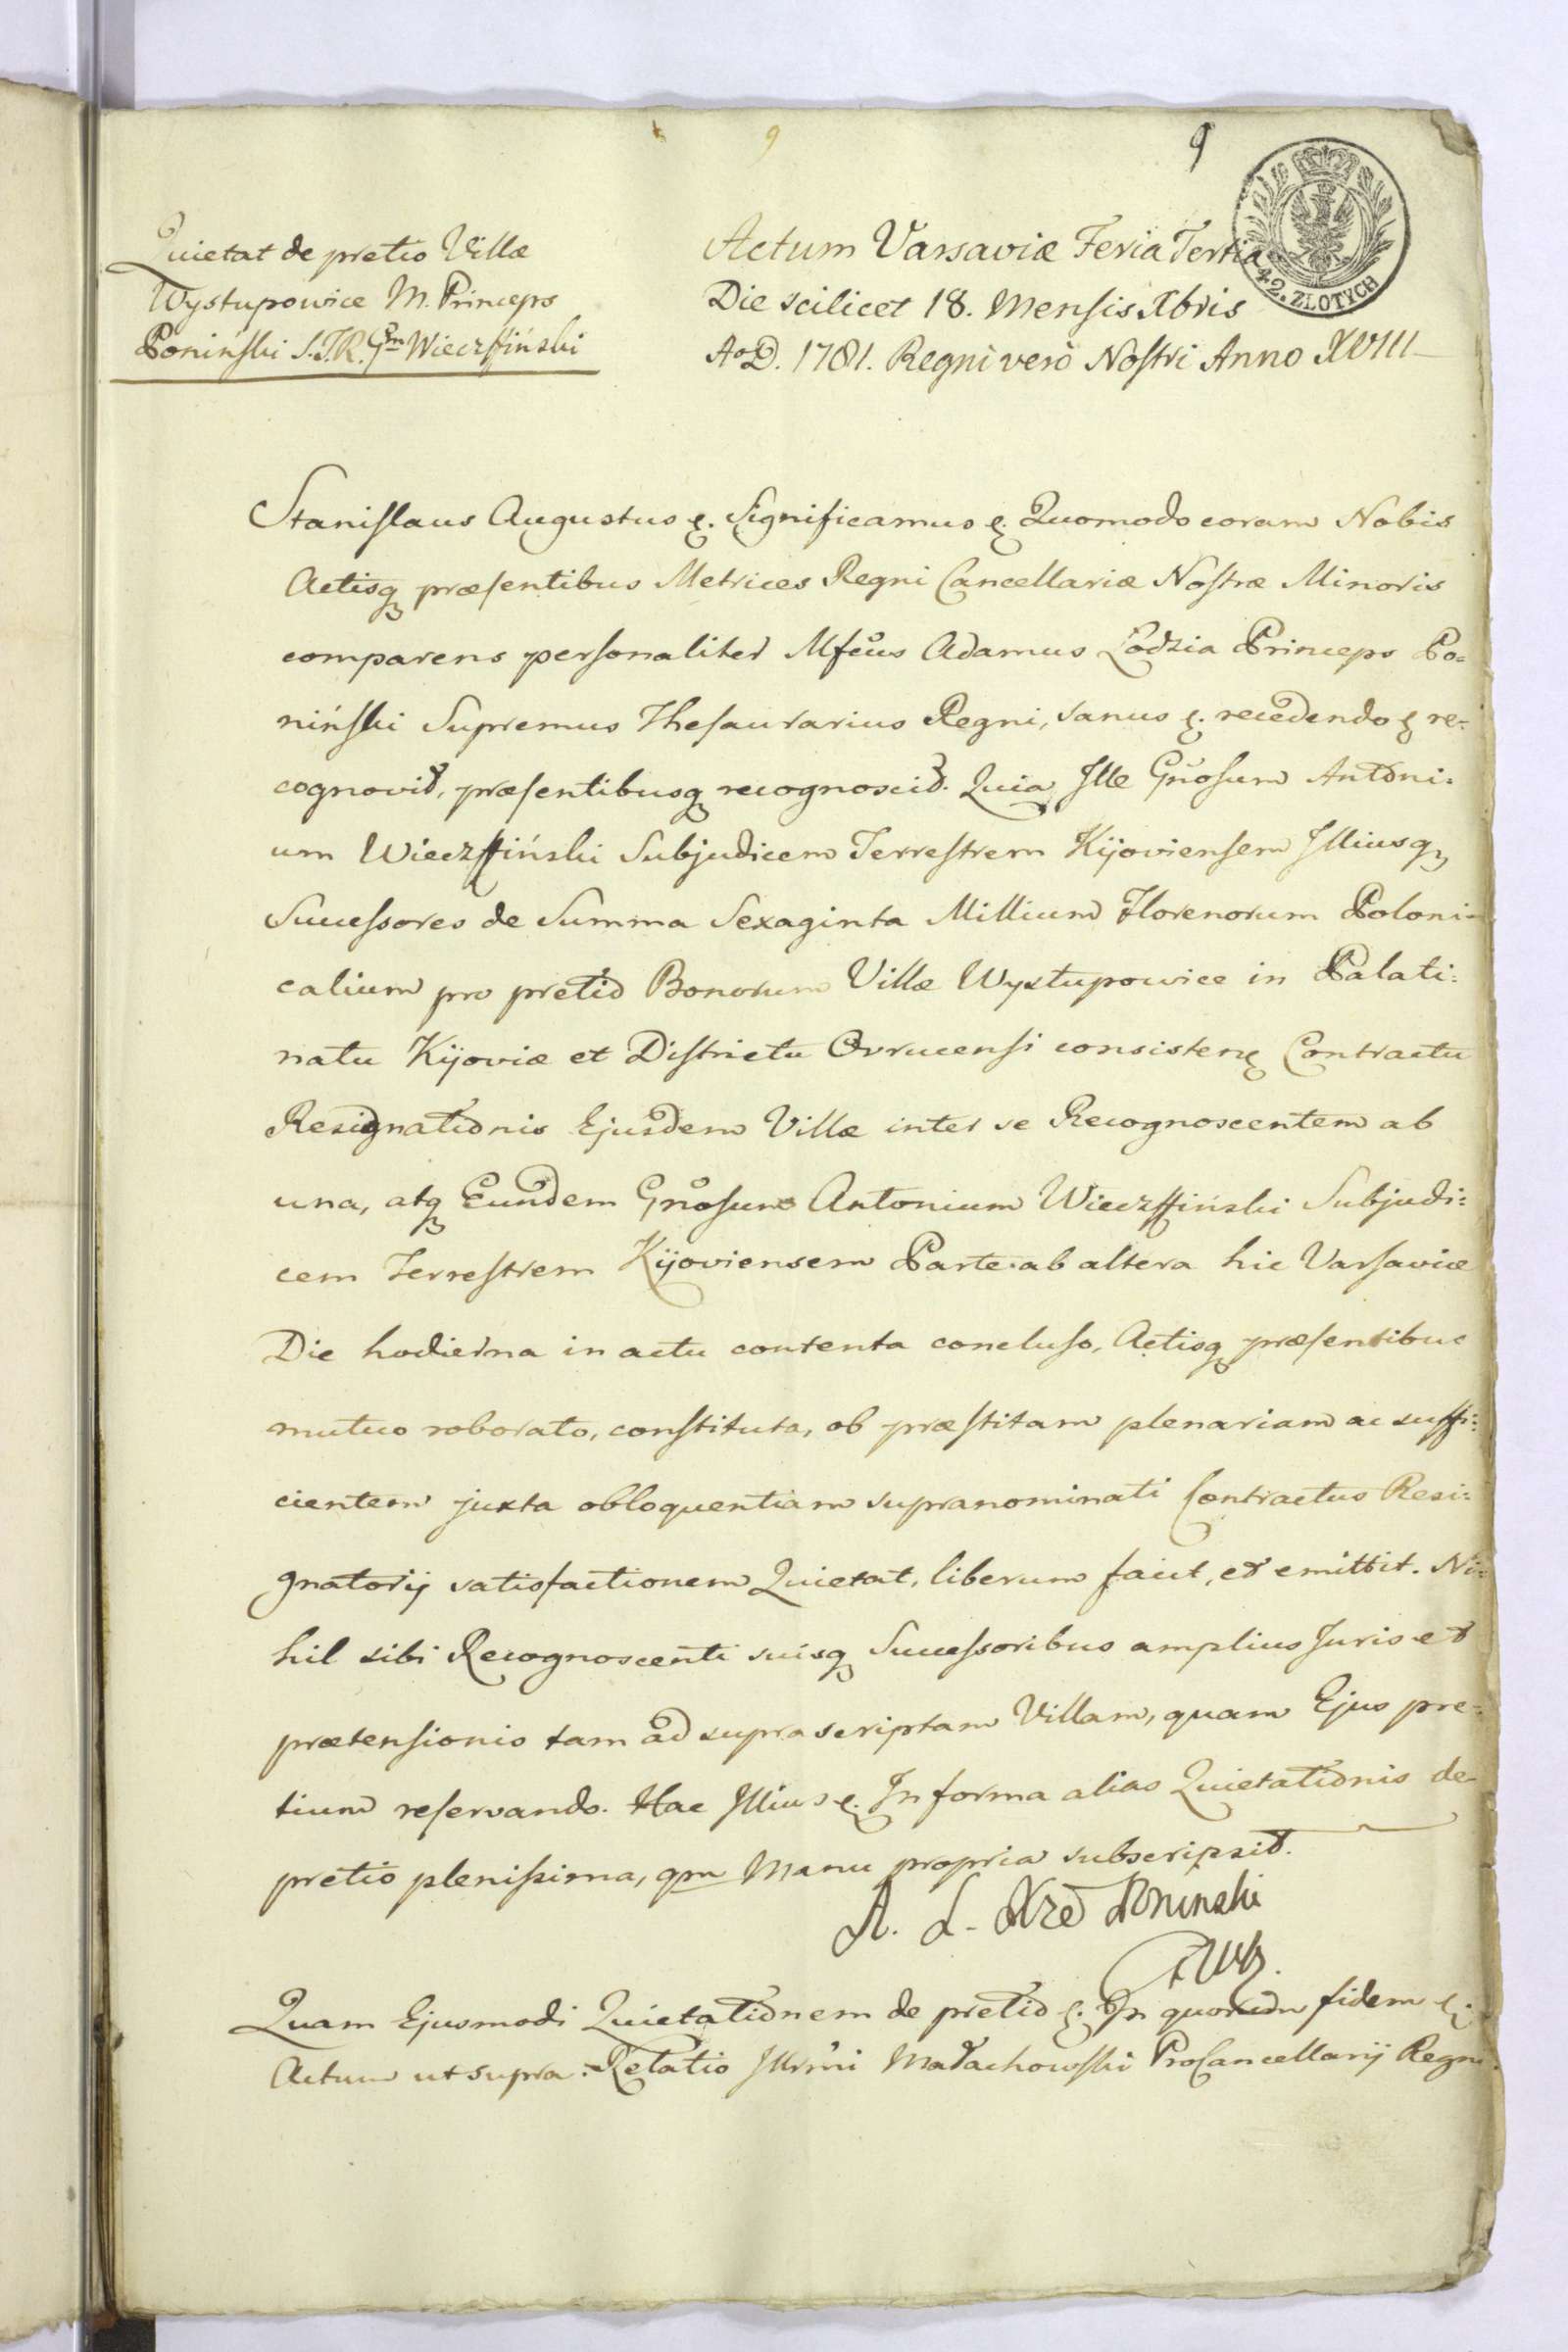 9
9
42. ZŁOTYCH
Quietat de pretio Villæ
Wystupowice M. Princeps
Poniński S.T.R. Gm Wieczffiński
Actum Varsaviæ Feria Tertia
Die scilicet 18. Mensis Xbris
Ao D. 1781. Regni verò Nostri Anno XVIII
Stanislaus Augustus &. Significamus &. Quomodo coram Nobis
Actisq præsentibus Metrices Regni Cancellariæ Nostræ Minoris
comparens personaliter Mfcus Adamus Łodzia Princeps Po=
niński Supremus Thesaurarius Regni, sanus &. recedendo & re=
cognovit, præsentibusq recognoscit. Quia Ille Gnosum Antoni=
um Wieczffiński Subjudicem Terrestrem Kijoviensem Illiusq
Successores de Summa Sexaginta Millium Florenorum Poloni=
calium pro pretio Bonorum Villæ Wystupowice in Palati=
natu Kijoviæ et Districtu Ovrucensi consisten& Contractu
Resignationis Ejusdem Villæ inter se Recognoscentem ab
una, atq Eundem Gnosum Antonium Wieczffiński Subjudi=
cem Terrestrem Kijoviensem Parte ab altera hic Varsaviæ
Die hodierna in actu contenta concluso, Actisq præsentibus
mutuo roborato, constituta, ob præstitam plenariam ac suffi=
cientem juxta obloquentiam supranominati Contractus Resi=
gnatorij satisfactionem Quietat, liberum facit, et emittit. Ni=
hil sibi Recognoscenti suisq Successoribus amplius Juris et
prætensionis tam ad suprascriptam Villam, quam Ejus pre=
tium reservando. Hac Illius &. In forma alias Quietationis de
pretio plenissima, qm Manu propria subscripsit.
A. Ł. Xże Poninski
Quam Ejusmodi Quietationem de pretio &. In quorum fidem &.
Actum ut supra. Relatio Illrmi Małachowski ProCancellarij Regni